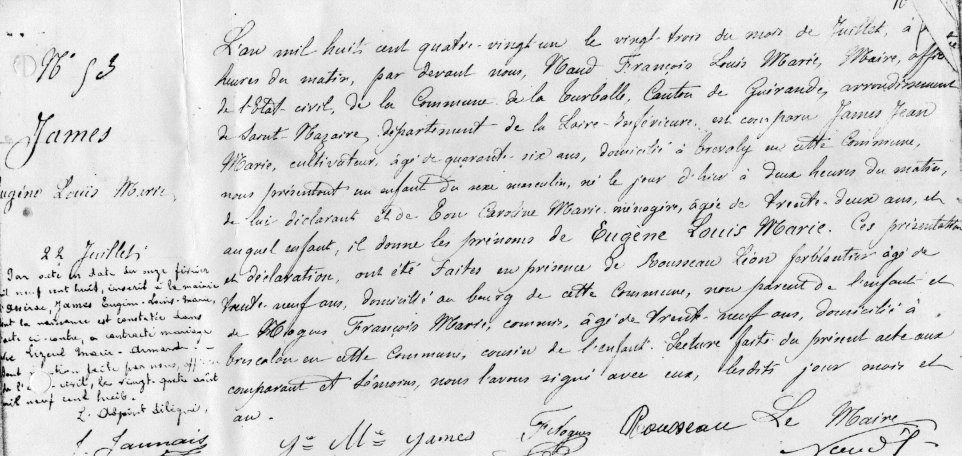 Nº 53
James
Eugène Louis Marie,
22 Juillet
Par acte en date du onze février
mil neuf cent huit, inscrit à la mairie
James Eugène-Louis-Marie,
dont la naissance est constatée dans
l'acte ci-contre, a contracté mariage
avec Marie-Armande
faite par nous, officier
de l'état civil, le vingt-quatre août
mil neuf cent huit.
L'adjoint délégué,
J. Jannais
L'an mil huit cent quatre-vingt-un le vingt-trois du mois de Juillet, à
heures du matin, par devant nous, François Louis Marie, Maire, officier
de l'Etat civil, de la Commune de la Turballe, Canton de Guérande, arrondissement
de Saint Nazaire, département de la Loire-Inférieure, est comparu James Jean
Marie, cultivateur, âgé de quarante-six ans, domicilié à en cette Commune,
nous présentent un enfant du sexe masculin, né le jour d'hier à deux heures du matin,
de lui déclarant et de Eon Caroline Marie ménagère, âgée de trente-deux ans, et
auquel enfant, il donne les prénoms de Eugène Louis Marie. Ces présentation
et déclaration, ont été faites en présence de Rousseau Léon ferblantier âgé de
trente-neuf ans, domicilié au bourg de cette Commune, non parent de l'enfant et
de François Marie, commis, âgé de trente-neuf ans, domicilié à
brescalan en cette Commune, cousin de l'enfant. Lecture faite du présent acte aux
comparant et témoins, nous l'avons signé avec eux, lesdits jour mois et
an.
Jn Mie James
Rousseau
Le Maire